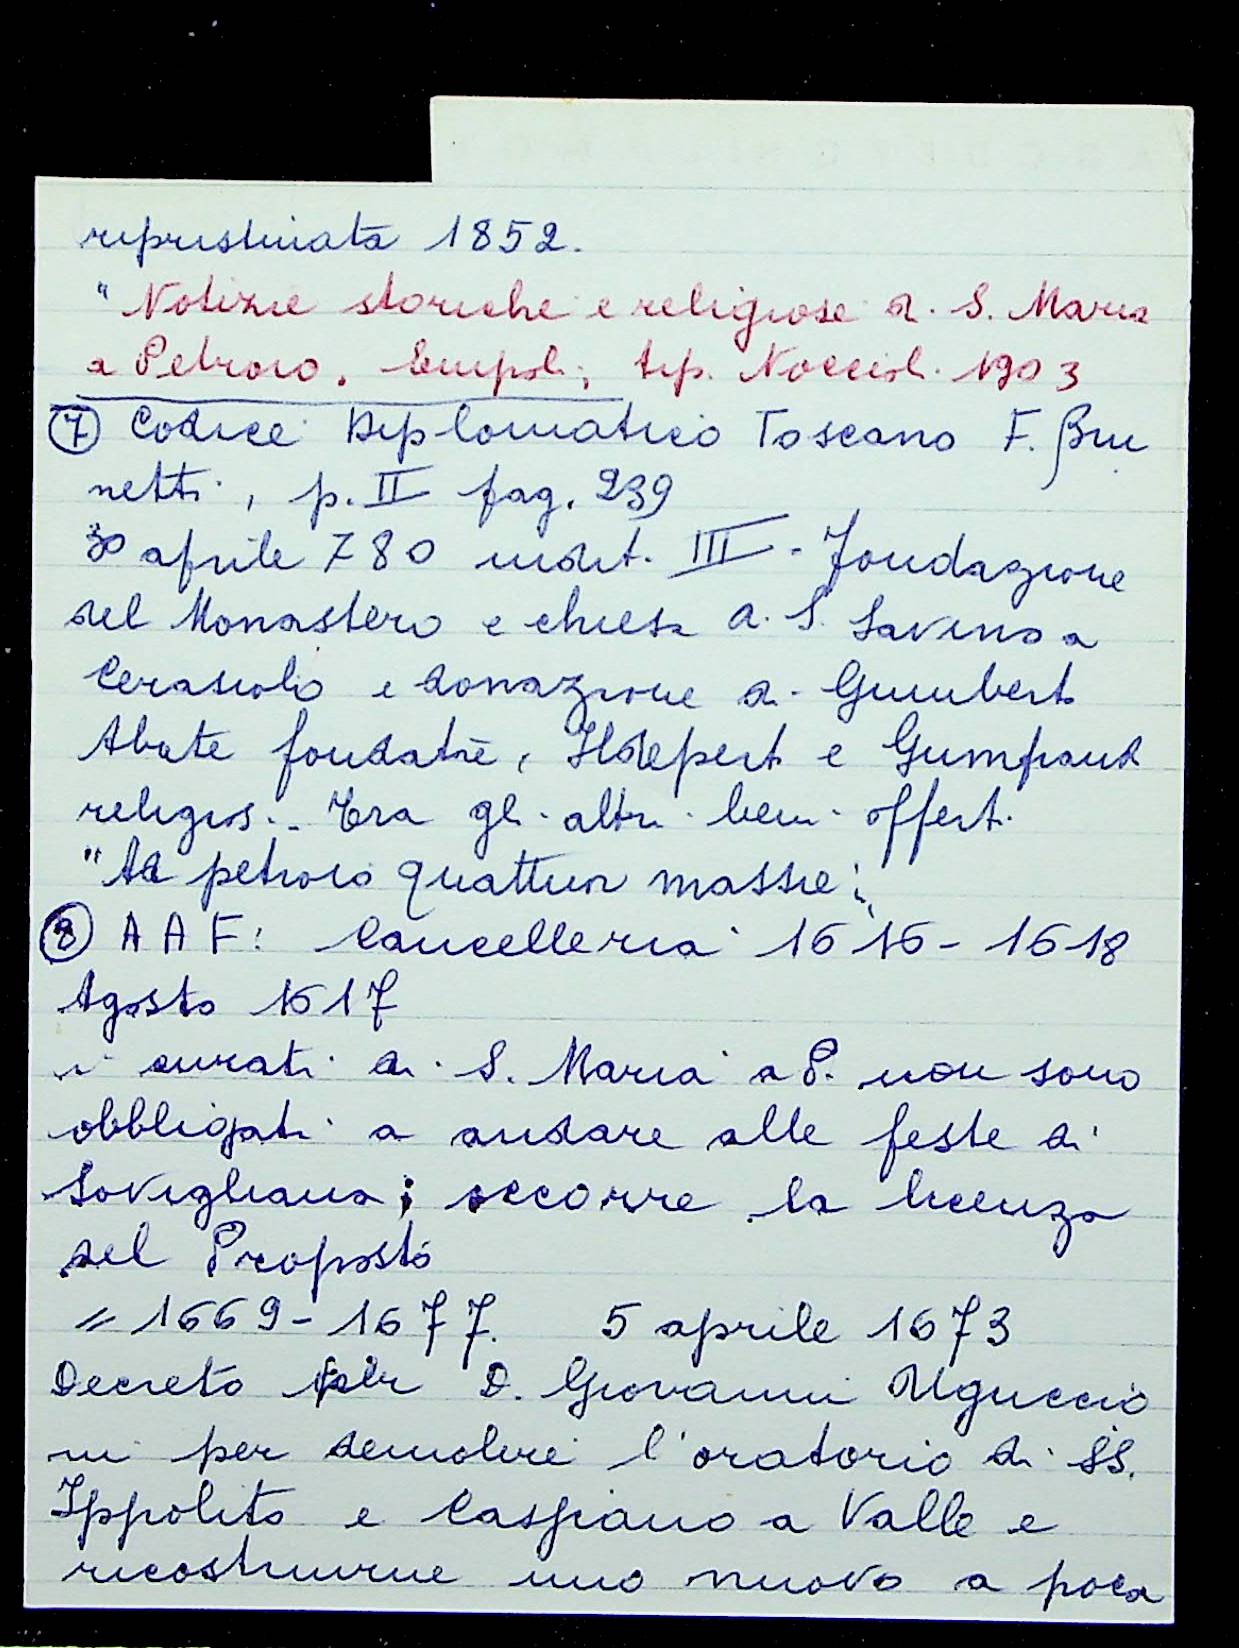 ripristinata 1852.
"Notizie storiche e religiose di S. Maria
a Petroio. Empoli, tip. Noccioli 1903
7 Codice Diplomatico Toscano F. Bru
netti, p. II pag. 239
30 aprile 780 indit. III - Fondazione
del Monastero e chiesa di S. Savino a
Cerasiolo e donazione di Gumberto
Abate fondatore, Ildepert e Gumprand
religiosi. - Tra gli altri beni offerti
"Ad petroio quattuor massie"
8 AAF: Cancelleria 1616-1618
Agosto 1617
i curati di S. Maria a P. non sono
obbligati a andare alle feste di
Sovigliana; occorre la licenza
del Proposto
= 1669-1677. 5 aprile 1673
Decreto per D. Giovanni Uguccio
ni per demolire l'oratorio di SS.
Ippolito e Cassiano a Valle e
ricostruirne uno nuovo a poca